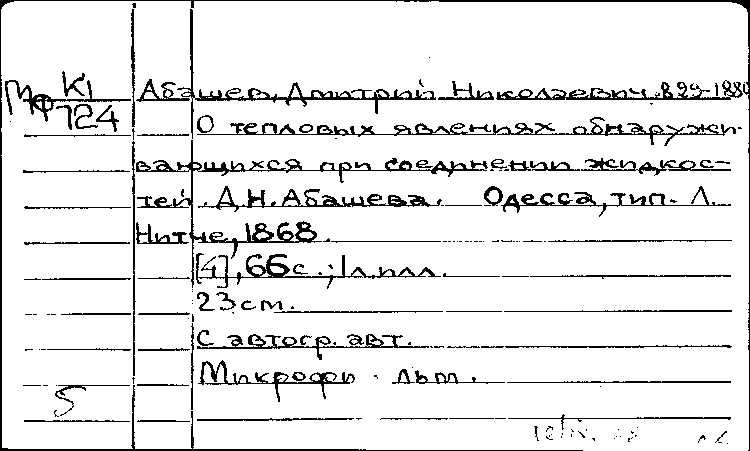 Мф К1 Абашев, Дмитрий Николаевич 1829-1880
724 О тепловых явлениях обнаружи-
вающихся при соединении жидкос-
тей. Д.Н. Абашева. Одесса, тип. Л.
Нитче, 1868.
[4], 66 с.; 1 л. илл.
23 см.
С автогр. авт.
Микрофи льм.
5